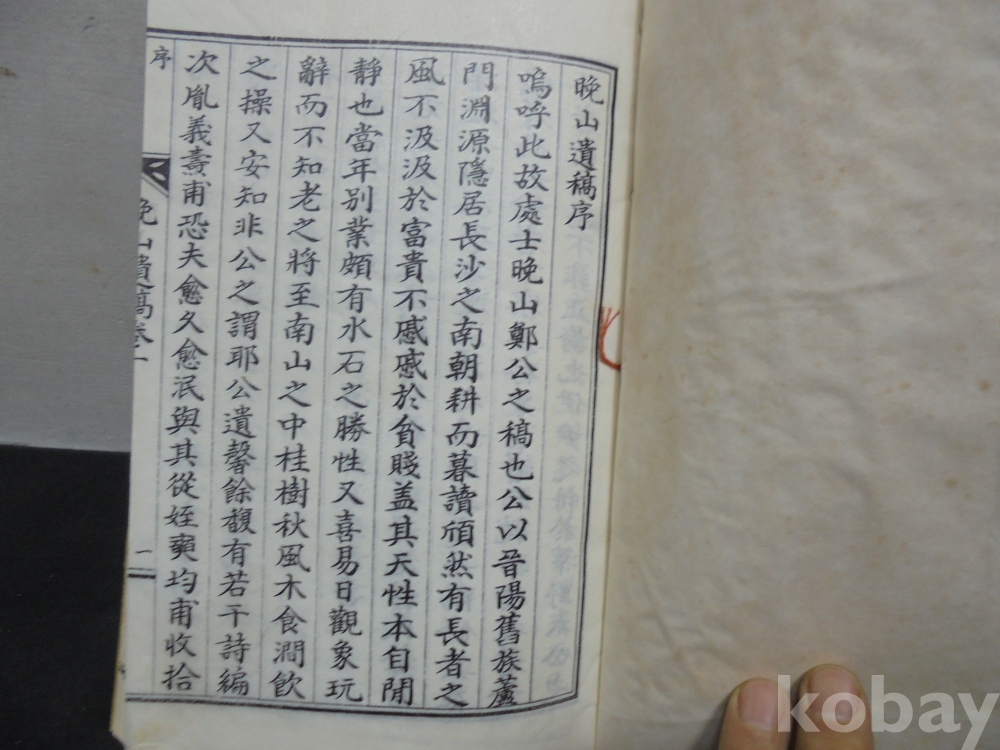 晚山遺稿序
嗚呼此故處士晚山鄭公之稿也公以晉陽舊族蘆
門淵源隱居長沙之南朝耕而暮讀頎然有長者之
風不汲汲於富貴不戚戚於貧賤盖其天性本自閒
靜也當年別業頗有水石之勝性又喜易日觀象玩
辭而不知老之將至南山之中桂樹秋風木食澗飮
之操又安知非公之謂耶公遺馨餘馥有若干詩編
次胤義壽甫恐夫愈久愈泯與其從姪奭均甫收拾
序
晚山遺稿卷一
一
kobay